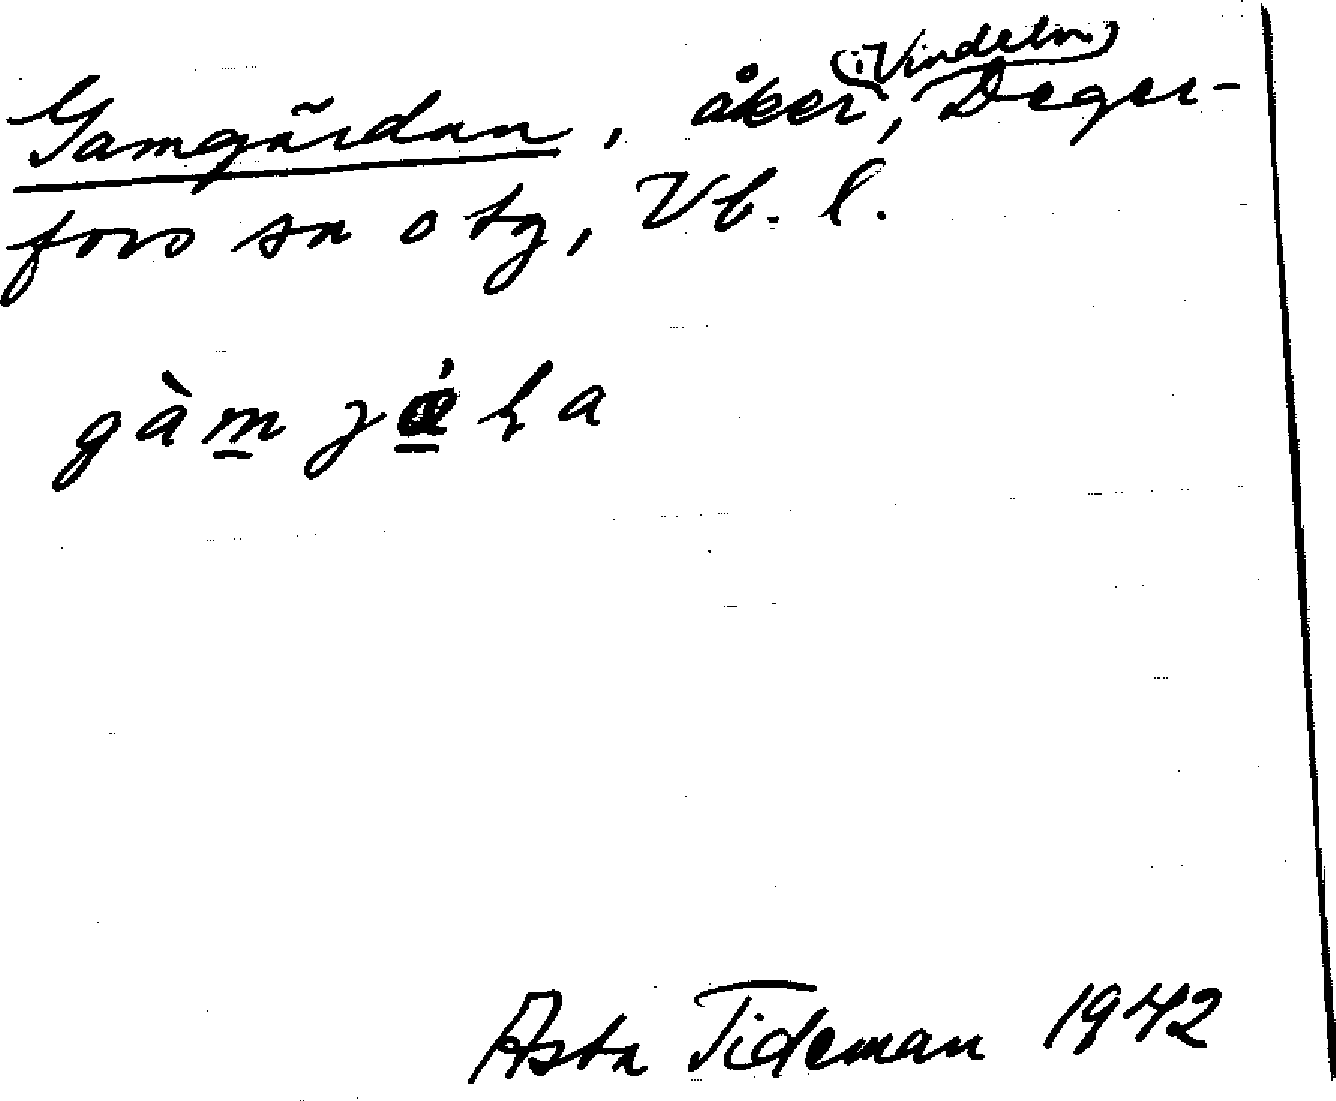 Gamgärdan, åker (i Vindeln), Deger-
fors sn o tg, Vb. l.
gàm
Asta Tideman 1942